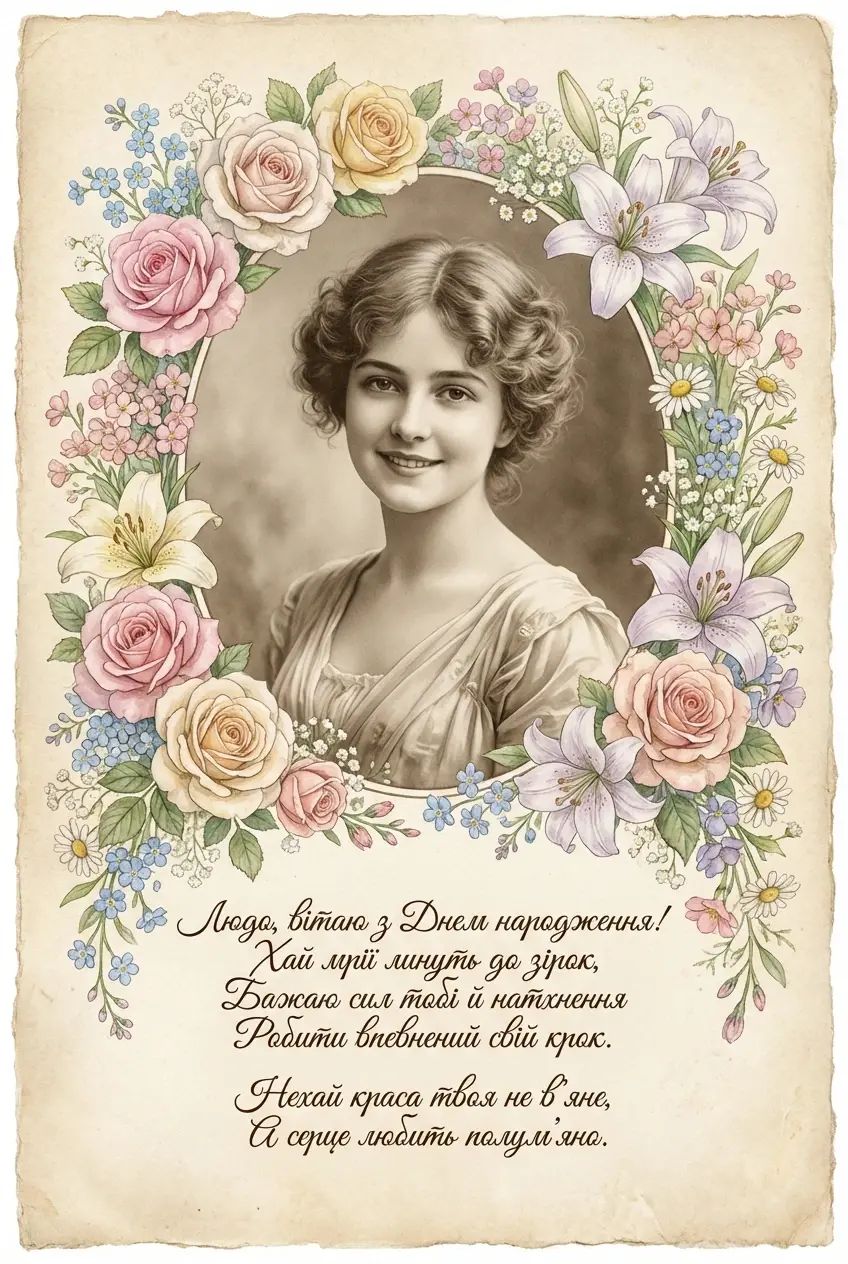 Людо, вітаю з Днем народження!
Хай мрії линуть до зірок,
Бажаю сил тобі й натхнення
Робити впевнений свій крок.
Нехай краса твоя не в'яне,
А серце любить полум'яно.